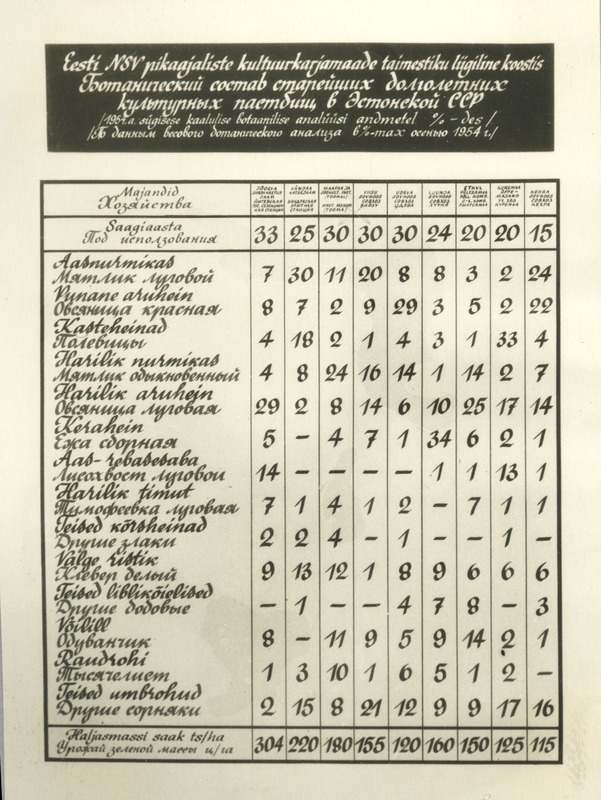 Eesti NSV pikaajaliste kultuurkarjamaade taimestiku liigiline koostis
Ботанический состав старейших долголетних
культурных пастбищ в Эстонской ССР
/1954.a. sügisese kaalulise botaanilise analüüsi andmetel %-des/
/По данным весового ботанического анализа в %-тах осенью 1954 г./
Majandid
Хозяйства
Saagiaasta
Год использования 33 25 30 30 30 24 20 20 15
Aasnurmikas
Мятлик луговой 7 30 11 20 8 8 3 2 24
Punane aruhein
Овсяница красная 8 7 2 9 29 3 5 2 22
Kasteheinad
Полевицы 4 18 2 1 4 3 1 33 4
Harilik nurmikas
Мятлик обыкновенный 4 8 24 16 14 1 14 2 7
Harilik aruhein
Овсяница луговая 29 2 8 14 6 10 25 17 14
Kerahein
Ежа сборная 5 – 4 7 1 34 6 2 1
Aas-rebasesaba
Лисохвост луговой 14 – – – – 1 1 13 1
Harilik timut
Тимофеевка луговая 7 1 4 1 2 – 7 1 1
Teised kõrsheinad
Другие злаки 2 2 4 – 1 – – 1 –
Valge ristik
Клевер белый 9 13 12 1 8 9 6 6 6
Teised liblikõielised
Другие бобовые – 1 – – 4 7 8 – 3
Võilill
Одуванчик 8 – 11 9 5 9 14 2 1
Raudrohi
Тысячелист 1 3 10 1 6 5 1 2 –
Teised umbrohud
Другие сорняки 2 15 8 21 12 9 9 17 16
Haljasmassi saak ts/ha
Урожай зеленой массы ц/га 304 220 180 155 120 160 150 125 115